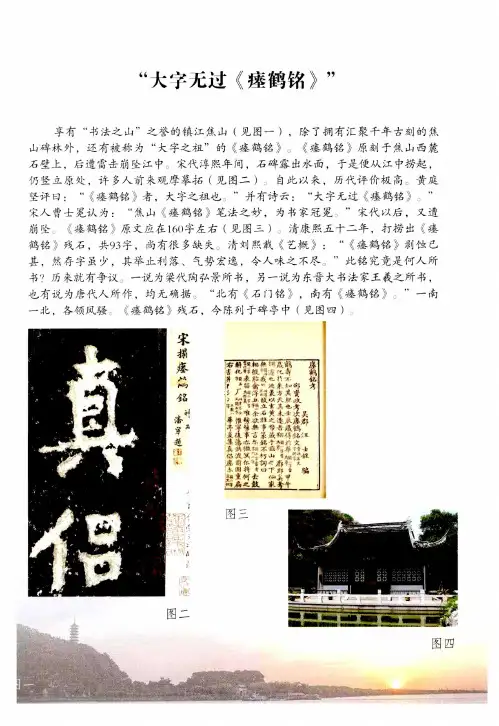 “大字无过《瘗鹤铭》”
享有“书法之山”之誉的镇江焦山（见图一），除了拥有汇聚千年古刻的焦
山碑林外，还有被称为“大字之祖”的《瘗鹤铭》。《瘗鹤铭》原刻于焦山西麓
石壁上，后遭雷击崩坠江中。宋代淳熙年间，石碑露出水面，于是便从江中捞起，
仍竖立原处，许多人前来观摩摹拓（见图二）。自此以来，历代评价极高。黄庭
坚评曰：“《瘗鹤铭》者，大字之祖也。”并有诗云：“大字无过《瘗鹤铭》。”
宋人曹士冕认为：“焦山《瘗鹤铭》笔法之妙，为书家冠冕。”宋代以后，又遭
崩坠。《瘗鹤铭》原文应在160字左右（见图三）。清康熙五十二年，打捞出《瘗
鹤铭》残石，共93字，尚有很多缺失。清刘熙载《艺概》：“《瘗鹤铭》剥蚀已
甚，然存字虽少，其举止利落、气势宏逸，令人味之不尽。”此铭究竟是何人所
书？历来就有争议。一说为梁代陶弘景所书，另一说为东晋大书法家王羲之所书，
也有说为唐代人所作，均无确据。“北有《石门铭》，南有《瘗鹤铭》。”一南
一北，各领风骚。《瘗鹤铭》残石，今陈列于碑亭中（见图四）。
真侣
宋搨瘗鹤铭
瘗鹤铭考
图三
图二
图四
图一